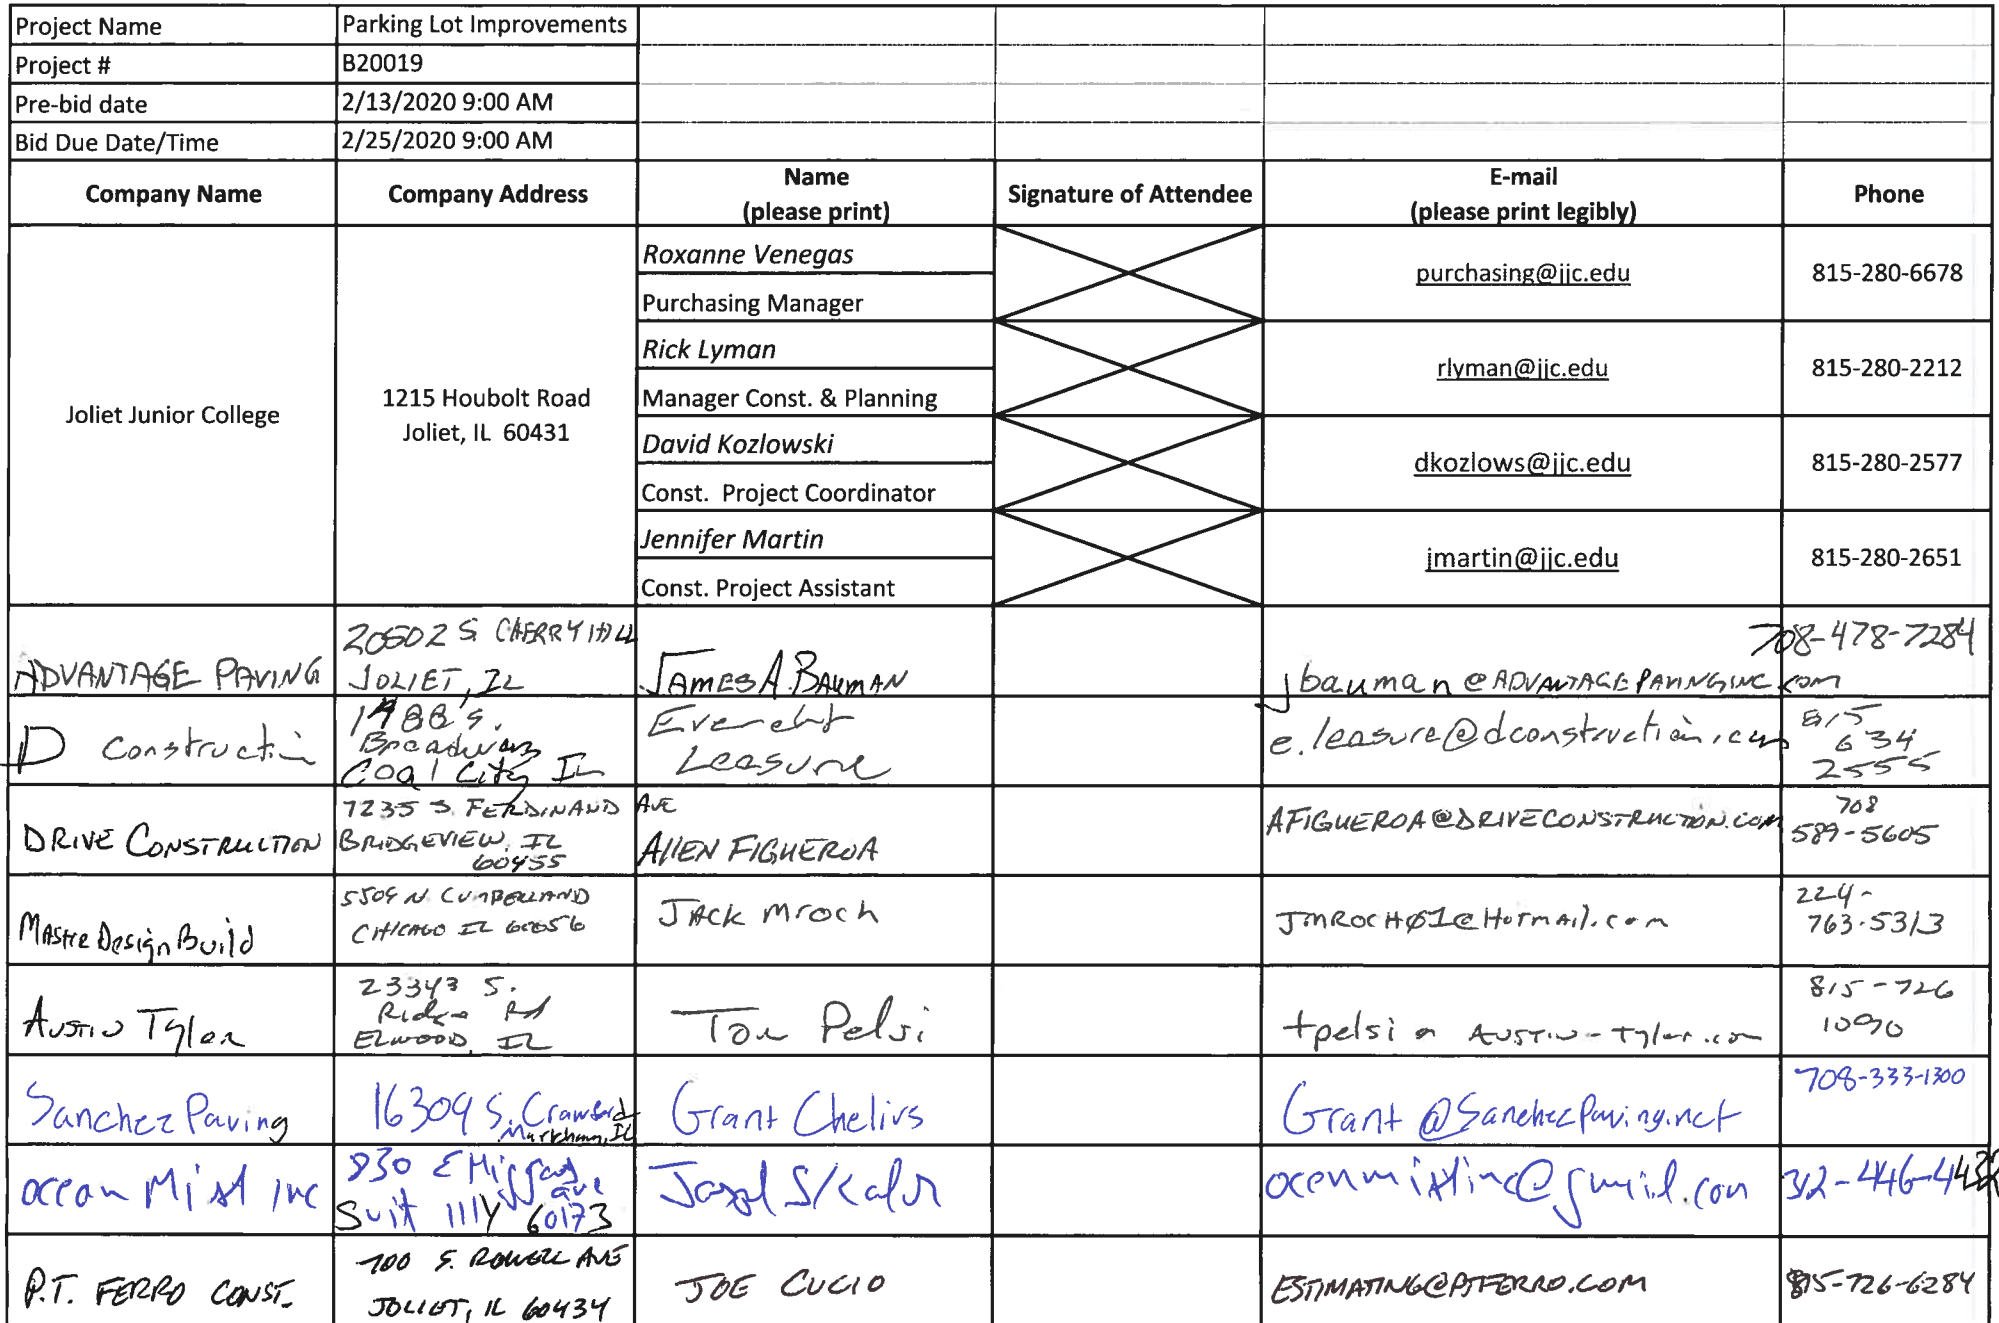 Project Name Parking Lot Improvements
Project # B20019
Pre-bid date 2/13/2020 9:00 AM
Bid Due Date/Time 2/25/2020 9:00 AM
Company Name Company Address Name (please print) Signature of Attendee E-mail (please print legibly) Phone
Joliet Junior College
1215 Houbolt Road
Joliet, IL 60431
Roxanne Venegas
Purchasing Manager
purchasing@jjc.edu 815-280-6678
Rick Lyman
Manager Const. & Planning
rlyman@jjc.edu 815-280-2212
David Kozlowski
Const. Project Coordinator
dkozlows@jjc.edu 815-280-2577
Jennifer Martin
Const. Project Assistant
jmartin@jjc.edu 815-280-2651
ADVANTAGE PAVING
20502 S. CHERRY HILL
JOLIET, IL
JAMES A. BAUMAN
jbauman@ADVANTAGEPAVINGINC.COM
708-478-7284
D Construction
1488 S.
Broadway
Coal City IL
Everett
Leasure
e.leasure@dconstruction.com
815
634
2555
DRIVE CONSTRUCTION
7235 S. FERDINAND AVE
BRIDGEVIEW, IL
60455
AllEN FIGUEROA
AFIGUEROA@DRIVECONSTRUCTION.COM
708
589-5605
Design Build
5509 N. CUMBERLAND
CHICAGO IL 60656
JACK Mroch
JMROCH01@Hotmail.com
224-
763-5313
Austin Tyler
23343 S.
Ridge Rd
ELWOOD, IL
Tom Pelsi
tpelsi @ AUSTIN-Tyler.com
815-726
1090
Sanchez Paving
16309 S. Crawford
Markham, IL
Grant Chelius
Grant@SanchezPaving.net
708-333-1300
ocean Mist inc
830 E Higgins
ave
Suit 111Y 60173
oceanmistinc@gmail.com
312-446-443
P.T. FERRO CONST.
700 S. ROWELL AVE
JOLIET, IL 60434
JOE CUCIO
ESTIMATING@PTFERRO.COM
815-726-6284